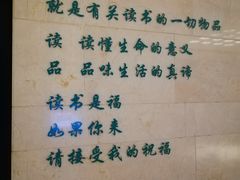 就是有关读书的一切物品
读 读懂生命的意义
品 品味生活的真谛
读书是福
如果你来
请接受我的祝福